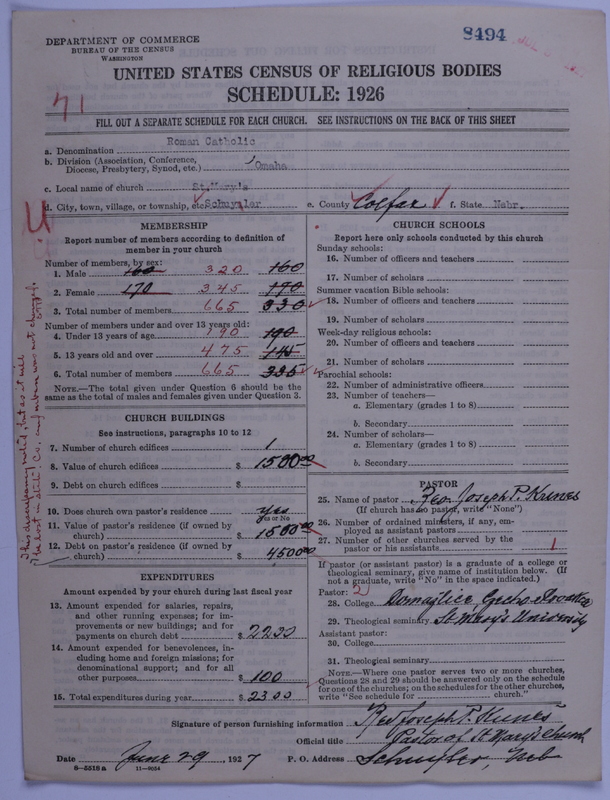 DEPARTMENT OF COMMERCE
BUREAU OF THE CENSUS
WASHINGTON
8494
UNITED STATES CENSUS OF RELIGIOUS BODIES
SCHEDULE: 1926
71
FILL OUT A SEPARATE SCHEDULE FOR EACH CHURCH. SEE INSTRUCTIONS ON THE BACK OF THIS SHEET
a. Denomination Roman Catholic
b. Division (Association, Conference, Diocese, Presbytery, Synod, etc.) Omaha
c. Local name of church St.Mary's
d. City, town, village, or township, etc. Schuyler e. County Colfax f. State Nebr.
MEMBERSHIP
Report number of members according to definition of
member in your church
Number of members, by sex:
1. Male 160 320 160
2. Female 170 345 170
3. Total number of members 665 330
Number of members under and over 13 years old:
4. Under 13 years of age 190 190
5. 13 years old and over 475 145
6. Total number of members 665 335
NOTE.—The total given under Question 6 should be the
same as the total of males and females given under Question 3.
CHURCH BUILDINGS
See instructions, paragraphs 10 to 12
7. Number of church edifices 1
8. Value of church edifices $ 1500.00
9. Debt on church edifices $
10. Does church own pastor's residence yes
Yes or No
11. Value of pastor's residence (if owned by
church) $ 1500.00
12. Debt on pastor's residence (if owned by
church) $ 4500.00
EXPENDITURES
Amount expended by your church during last fiscal year
13. Amount expended for salaries, repairs,
and other running expenses; for im-
provements or new buildings; and for
payments on church debt $ 2230
14. Amount expended for benevolences, in-
cluding home and foreign missions; for
denominational support; and for all
other purposes $ 100
15. Total expenditures during year $ 2300
CHURCH SCHOOLS
Report here only schools conducted by this church
Sunday schools:
16. Number of officers and teachers
17. Number of scholars
Summer vacation Bible schools:
18. Number of officers and teachers
19. Number of scholars
Week-day religious schools:
20. Number of officers and teachers
21. Number of scholars
Parochial schools:
22. Number of administrative officers
23. Number of teachers—
a. Elementary (grades 1 to 8)
b. Secondary
24. Number of scholars—
a. Elementary (grades 1 to 8)
b. Secondary
PASTOR
25. Name of pastor Rev Joseph P. Kunes
(If church has no pastor, write "None")
26. Number of ordained ministers, if any, em-
ployed as assistant pastors
27. Number of other churches served by the
pastor or his assistants 1
If pastor (or assistant pastor) is a graduate of a college or
theological seminary, give name of institution below. (If
not a graduate, write "No" in the space indicated.)
Pastor:
28. College Domazlice
29. Theological seminary St Mary's University
Assistant pastor:
30. College
31. Theological seminary
NOTE.—Where one pastor serves two or more churches,
Questions 28 and 29 should be answered only on the schedule
for one of the churches; on the schedules for the other churches,
write "See schedule for church."
Signature of person furnishing information Rev Joseph P. Kunes
Official title Pastor of St Mary's Church
Date June 29, 1927 P. O. Address Schuyler, Neb
8—5518a 11—8054